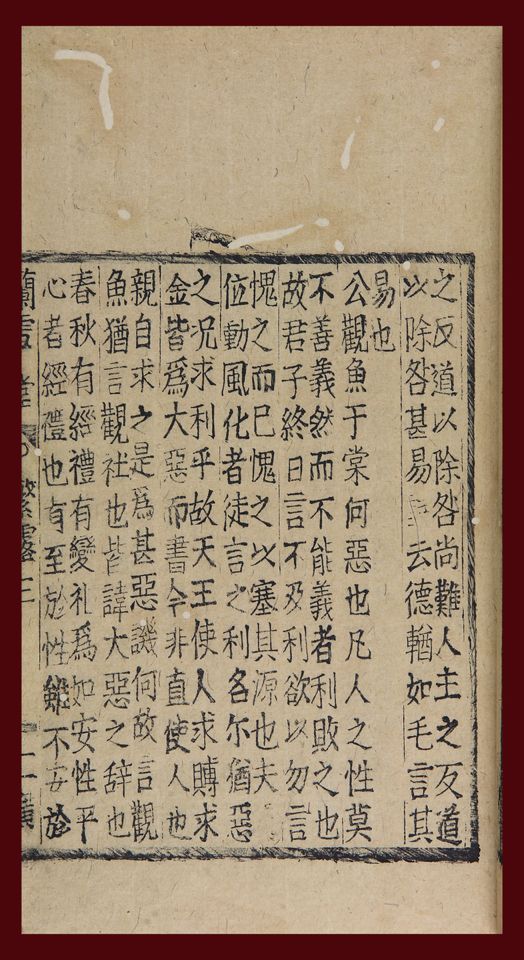 之反道以除咎尚難人主之反道
以除咎甚易詩云德輶如毛言其
易也
公觀魚于棠何惡也凡人之性莫
不善義然而不能義者利敗之也
故君子終日言不及利欲以勿言
愧之而已愧之以塞其源也夫
位動風化者徒言之利名尓猶惡
之况求利乎故天王使人求賻求
金皆爲大惡而書今非直使人也
親自求之是爲甚惡譏何故言觀
魚猶言觀社也皆諱大惡之辞也
春秋有經禮有變礼爲如安性平
心者經禮也有至於性雖不安於
蘭雪堂 繁露二